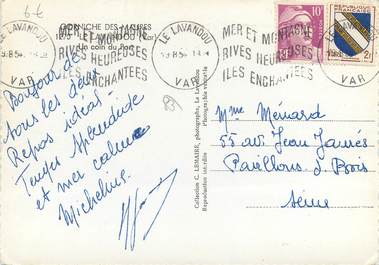 6-E
CORNICHE DES MAURES
LE LAVANDOU (Var)
Un coin du Port
LE LAVANDOU
VAR
MER ET MONTAGNE
RIVES HEUREUSES
ILES ENCHANTEES
LE LAVANDOU
VAR
MER ET MONTAGNE
RIVES HEUREUSES
ILES ENCHANTEES
10F
REPUBLIQUE FRANÇAISE
2F
83
Bonjour de
tous les deux
Repos idéal
Temps splendide
et mer calme
Micheline
Collection C. LEMAIRE, photographe, Le Lavandou
Reproduction interdite
Photographie véritable
Mme Menard
55 av Jean Jaurès
Pavillons s/ Bois
Seine